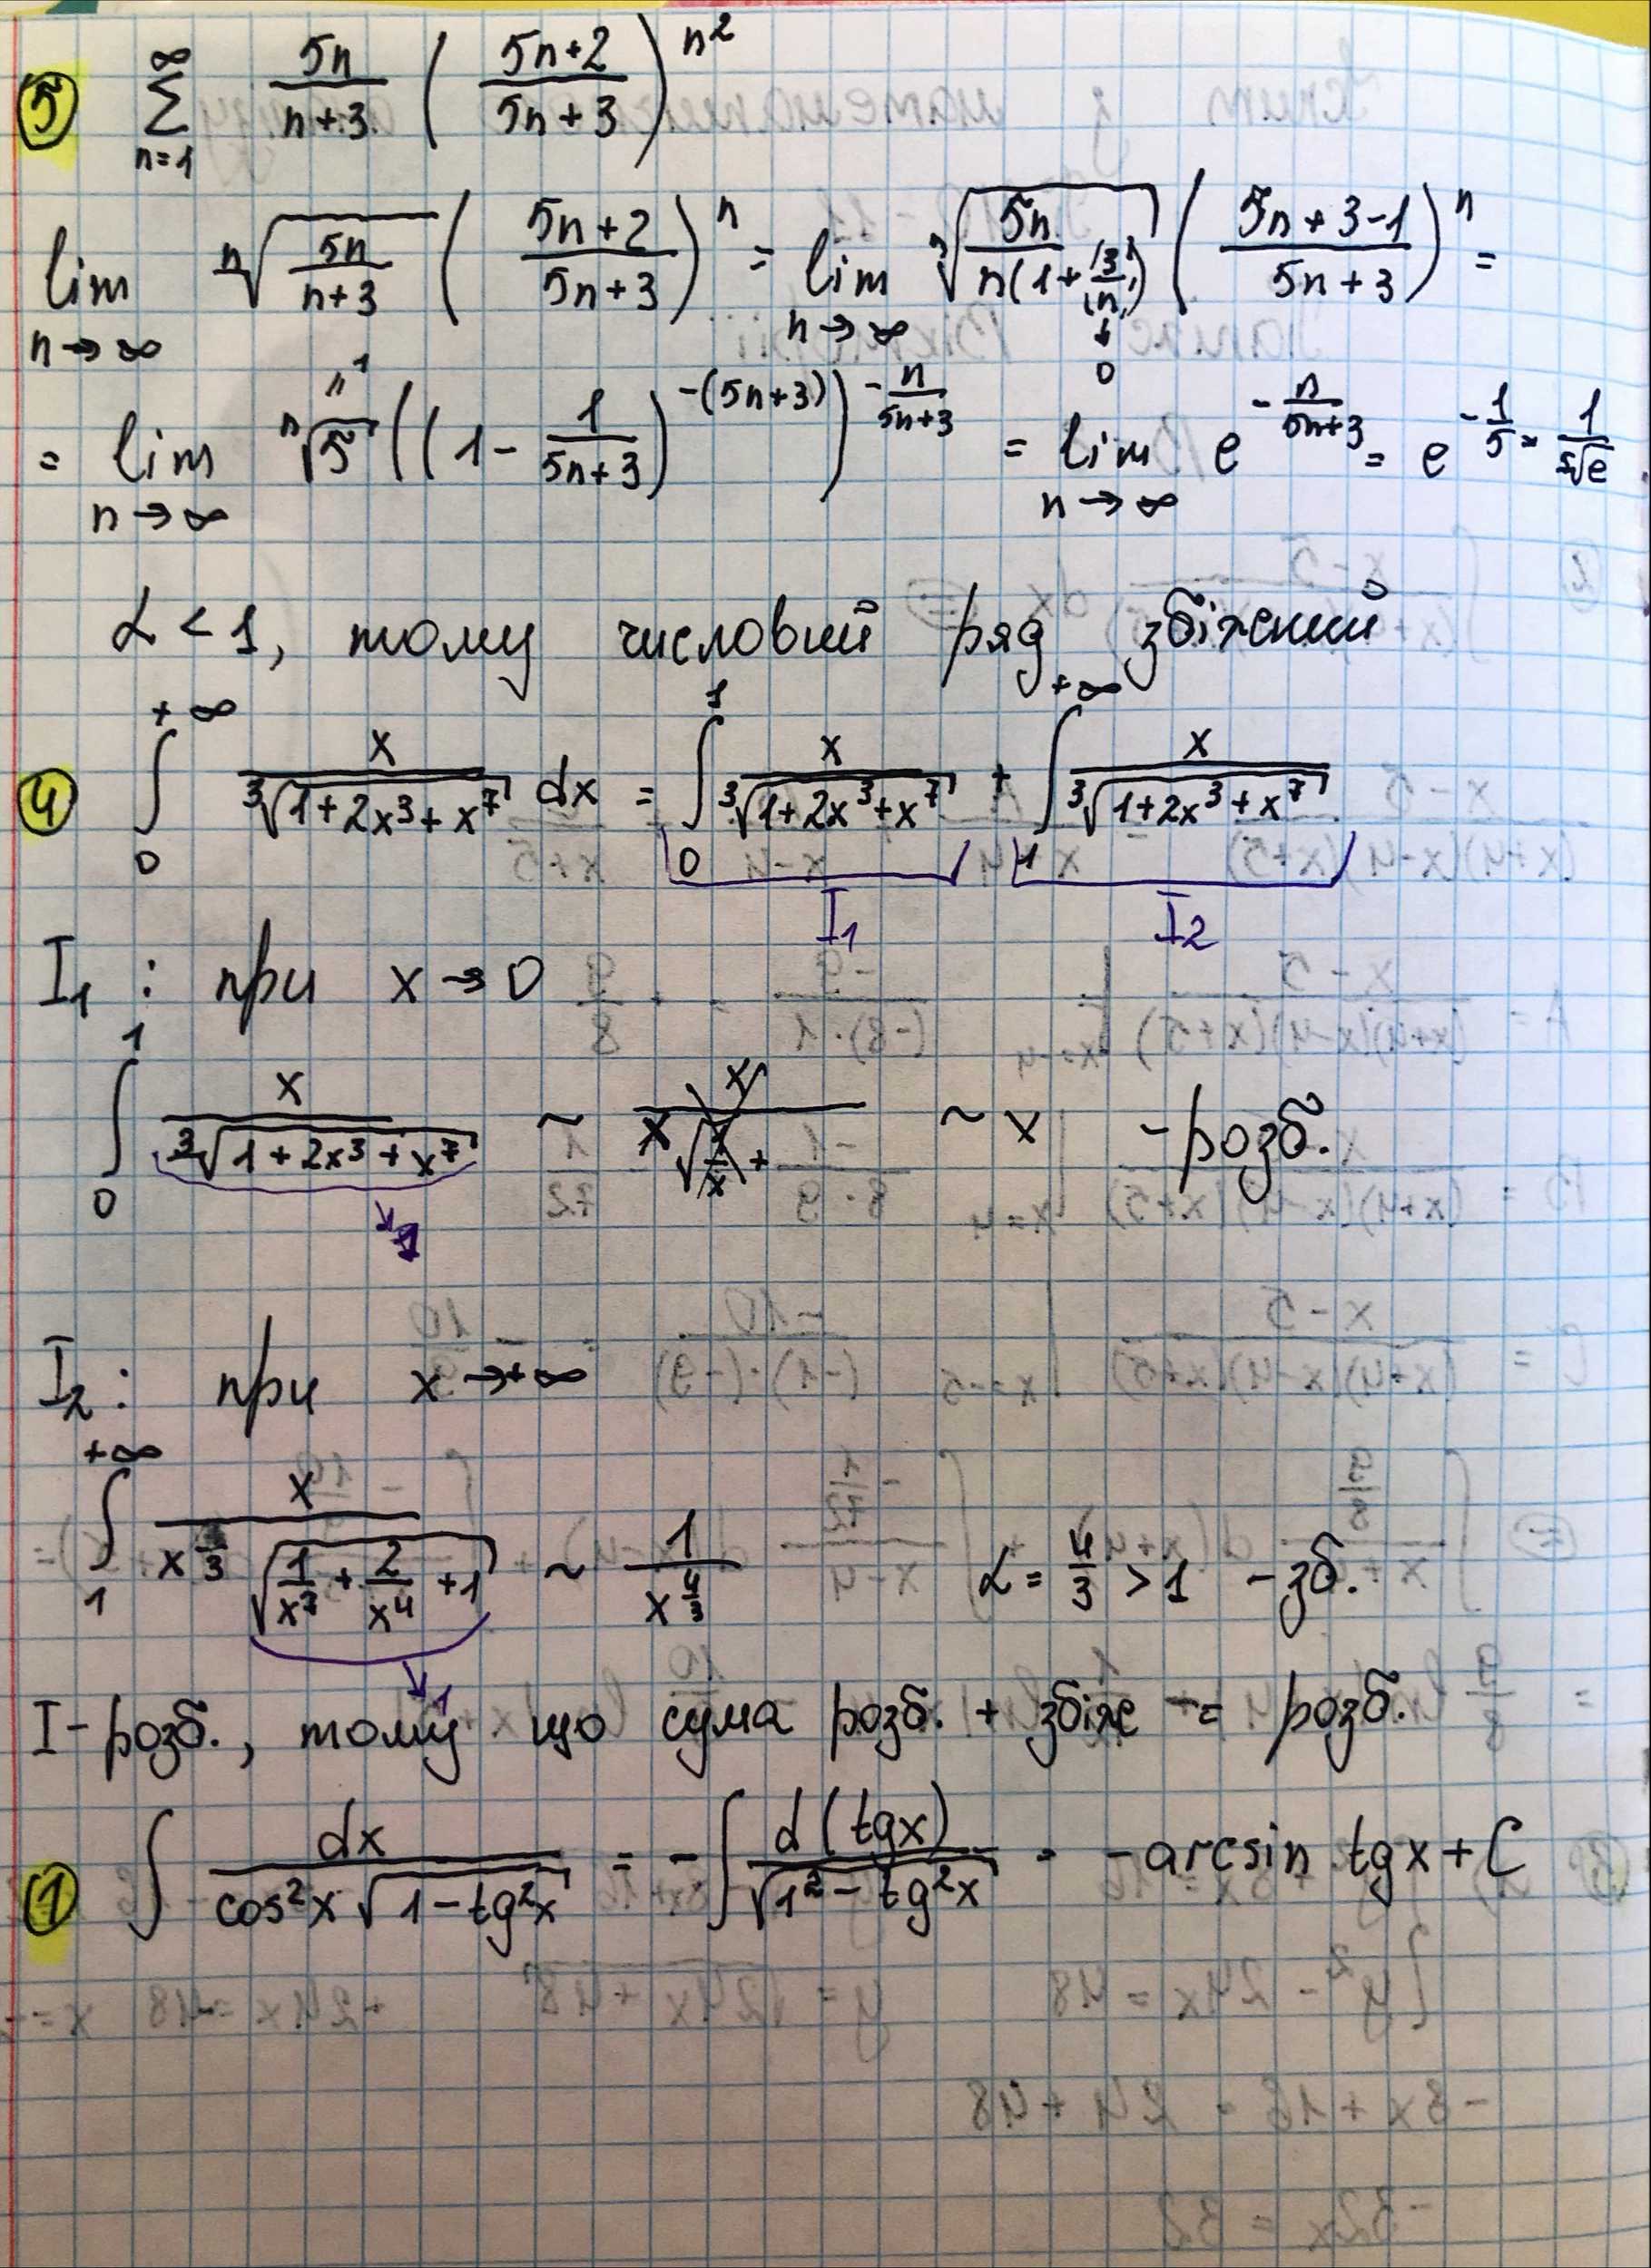 ⑤ ∑_{n=1}^{∞} 5n/(n+3) ((5n+2)/(5n+3))^{n²}
lim_{n→∞} ⁿ√(5n/(n+3)) ((5n+2)/(5n+3))^n = lim_{n→∞} ⁿ√(5n/(n(1+3/n))) ((5n+3-1)/(5n+3))^n =
↓ 0
= lim_{n→∞} ⁿ√5 ((1 - 1/(5n+3))^{-(5n+3)})^{-n/(5n+3)} = lim_{n→∞} e^{-n/(5n+3)} = e^{-1/5} = 1/⁵√e
α < 1, тому числовий ряд збіжний
④ ∫_0^{+∞} x/∛(1+2x³+x⁷) dx = ∫_0^1 x/∛(1+2x³+x⁷) + ∫_1^{+∞} x/∛(1+2x³+x⁷)
I₁ I₂
I₁ : при x → 0
∫_0^1 x/∛(1+2x³+x⁷) ~ ~ x - розб.
↘1
I₂ : при x → +∞
∫_1^{+∞} x/(x^{7/3} √(1/x⁷ + 2/x⁴ + 1)) ~ 1/x^{4/3} α = 4/3 > 1 - зб.
↘1
I - розб., тому що сума розб. + збіж = розб.
① ∫ dx/(cos²x √(1-tg²x)) = -∫ d(tgx)/√(1²-tg²x) = -arcsin tgx + C